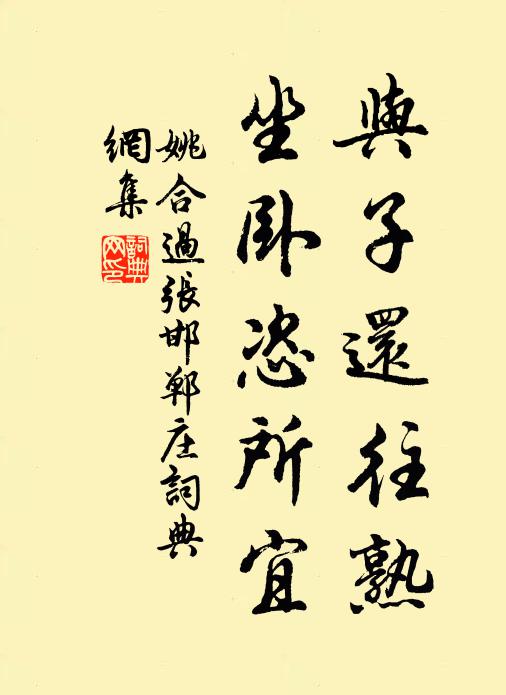 與子還往熟
坐卧恣所宜
姚合過張邯鄲庄詞典
網集
詞典網印